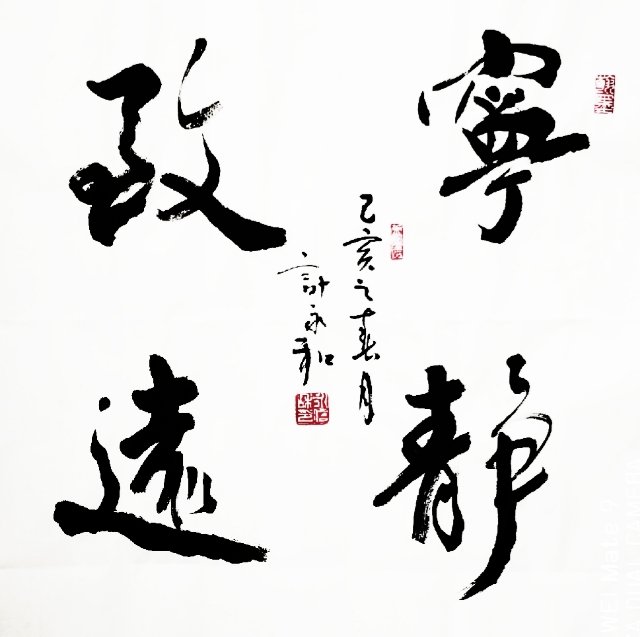 寧靜
致遠
己亥之春月
計永和